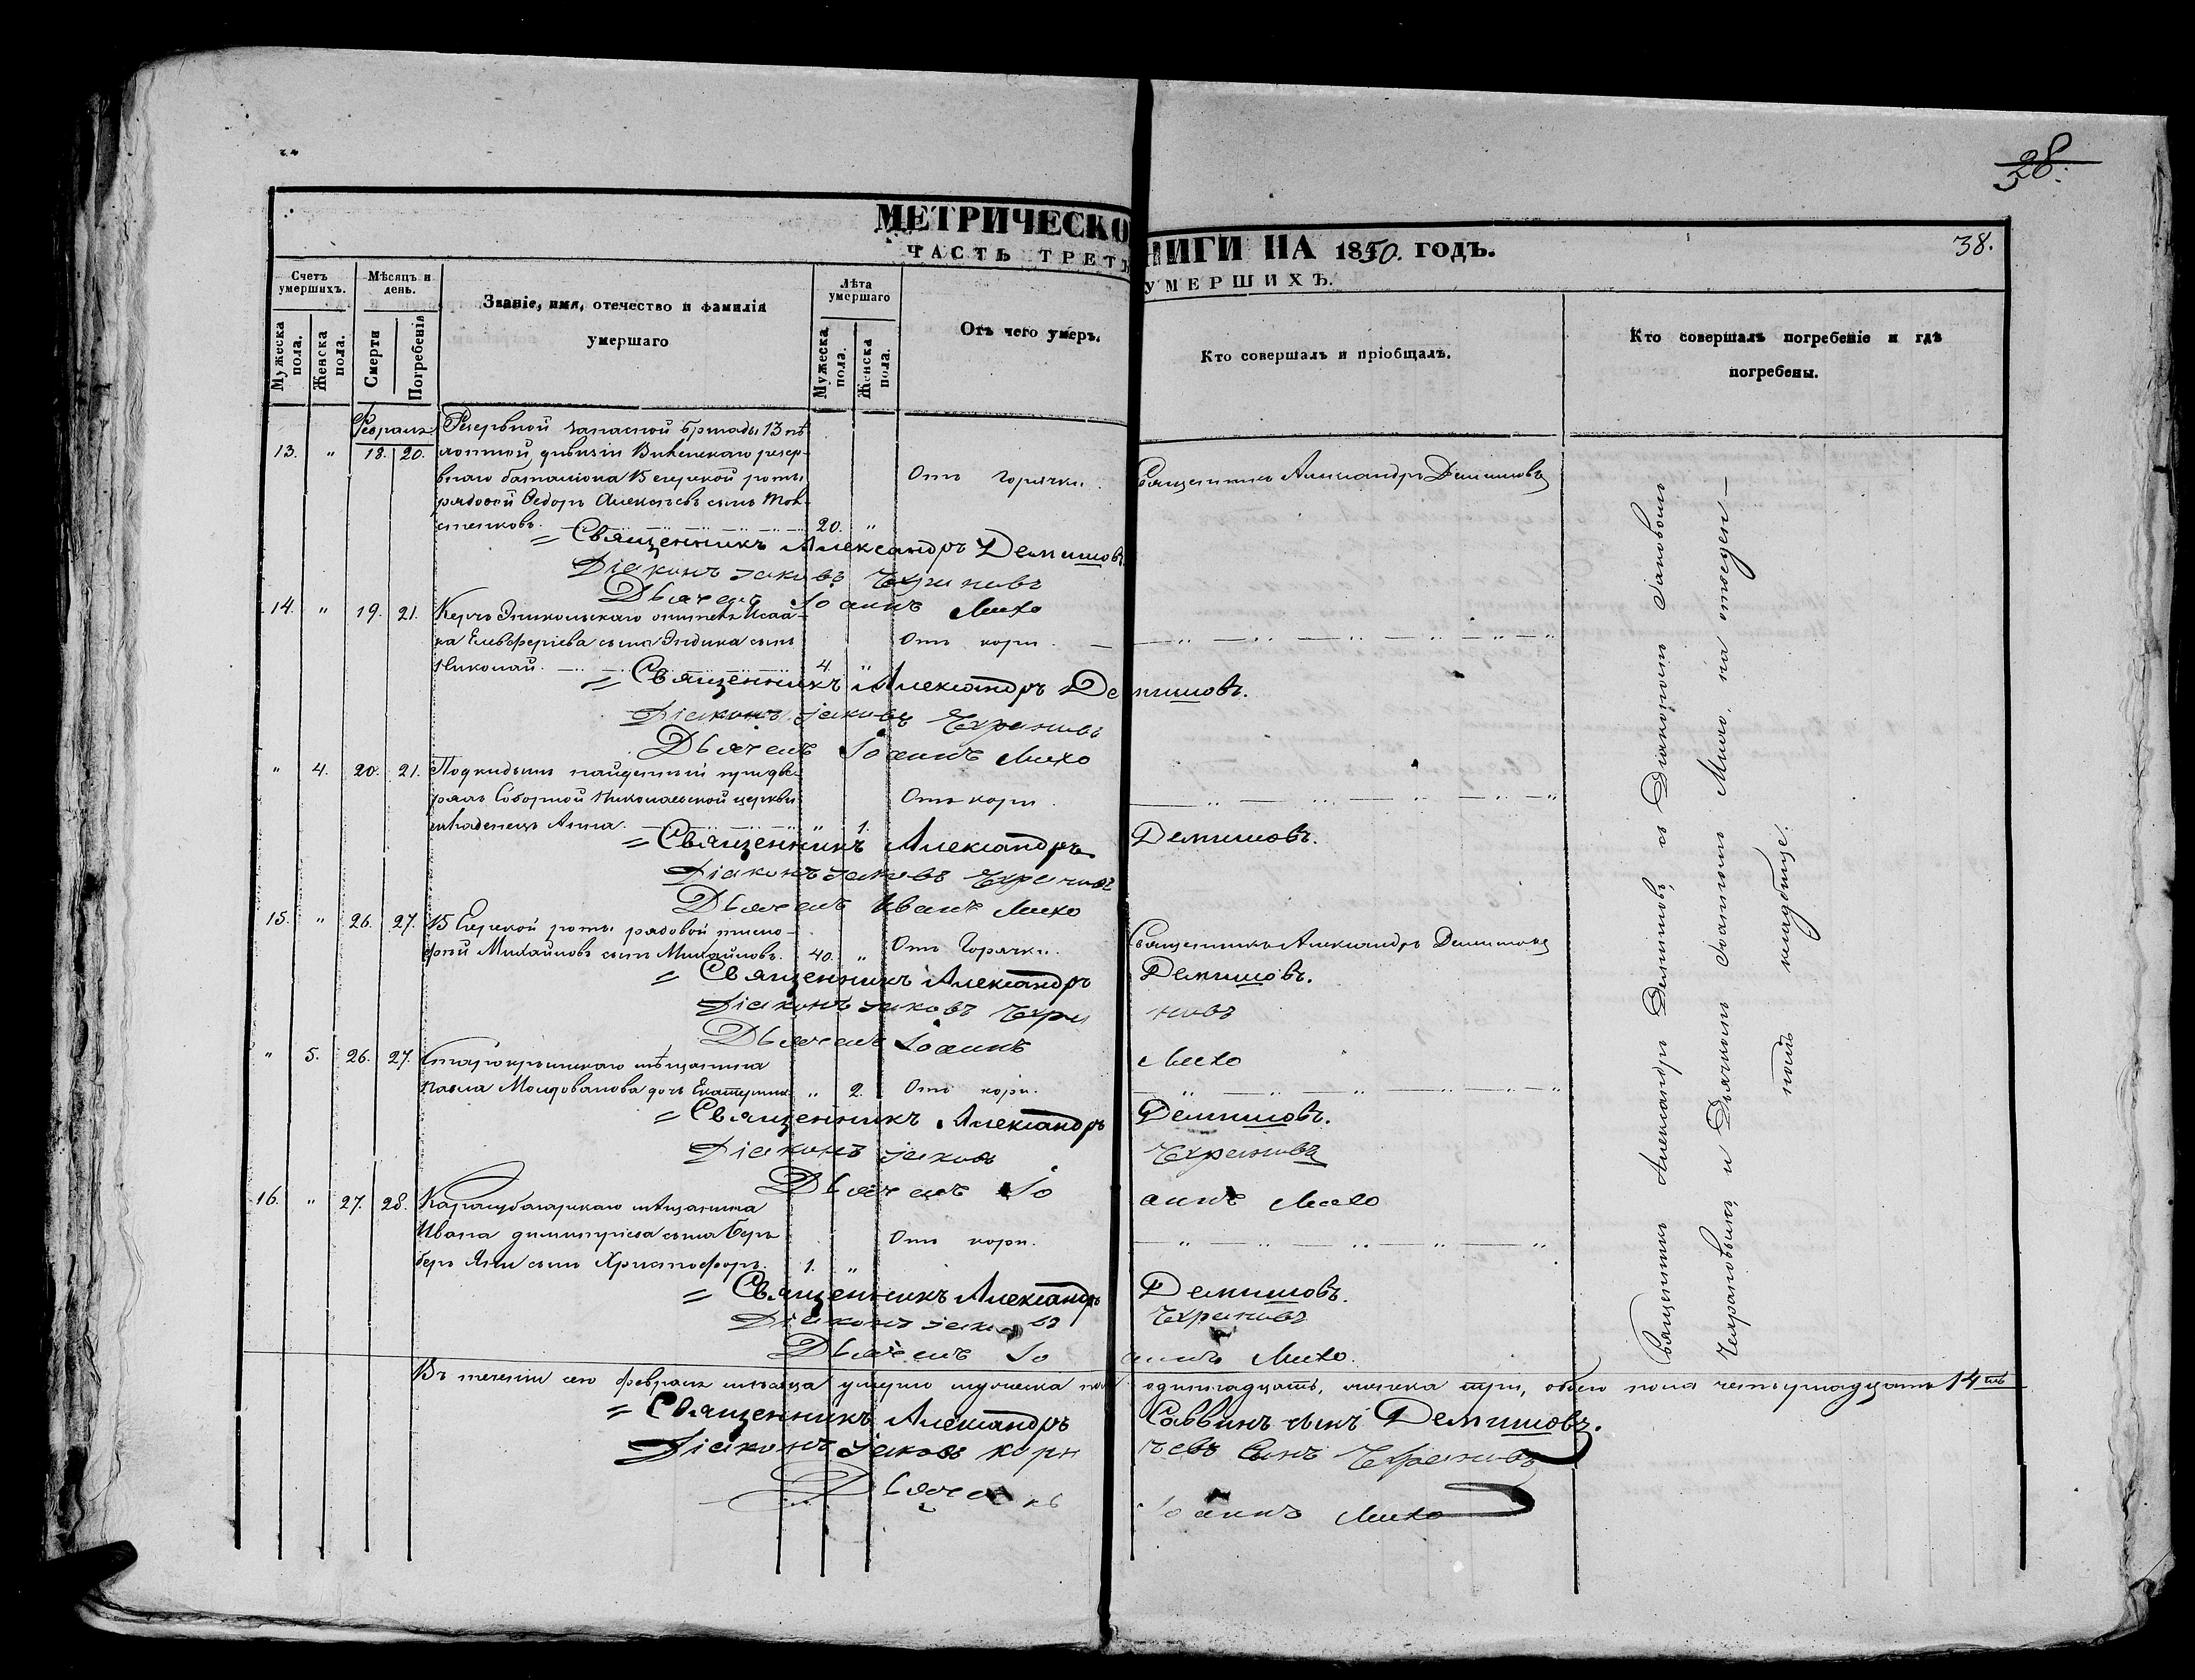 28.
МЕТРИЧЕСКО НИГИ НА 1850. ГОДЪ.
38.
ЧАСТЬ ТРЕТЬ УМЕРШИХЪ.
Счетъ умершихъ.
Мѣсяцъ и день.
Званіе, имя, отечество и фамилія умершаго
Лѣта умершаго
Отъ чего умеръ.
Кто совершалъ и пріобщалъ.
Кто совершалъ погребеніе и гдѣ погребены.
Мужеска пола.
Женска пола.
Смерти
Погребенія
Мужеска пола.
Женска пола.
Февраль
Резервной запасной бригады 13 пѣ
13. " 18. 20. хотной дивизіи Виленскаго резер-
внаго баталіона 15 егерской роты
Отъ Горячки.
Священникъ Александръ Демишовъ
рядовой Ѳедоръ Алексѣевъ сынъ
20. "
= Священникъ Александръ Демишовъ
Діаконъ Іаковъ Чехрановъ
Дьячекъ Іоаннъ Михо
14. " 19. 21. Керчь Эникольскаго Исаа-
ка Елевферіева сына сынъ
Отъ кори.
Николай. 4. "
= Священникъ Александръ Демишовъ.
Діаконъ Іаковъ Чехрановъ
Дьячекъ Іоаннъ Михо
" 4. 20. 21. Подкидышъ найденный при две-
ряхъ Соборной Николаевской церкви
Отъ кори.
младенецъ Анна. " 1.
= Священникъ Александръ Демишовъ.
Діаконъ Іаковъ Чехрановъ
Дьячекъ Иванъ Михо
15. " 26. 27. 15 Егерской роты рядовой тимо-
фей Михайловъ сынъ Михайловъ. 40. " Отъ Горячки. Священникъ Александръ Демишовъ
= Священникъ Александръ Демишовъ.
Діаконъ Іаковъ Чехрановъ
Дьячекъ Іоаннъ Михо
" 5. 26. 27. Старокрымскаго мѣщанина
Павла Молдованова дочь Екатерина " 2. Отъ кори.
= Священникъ Александръ Демишовъ.
Діаконъ Іаковъ Чехрановъ
Дьячекъ Іоаннъ Михо
16. " 27. 28. Карасубазарскаго мѣщанина
Ивана димитріева сына
Отъ кори.
сынъ Христофоръ. 1. "
= Священникъ Александръ Демишовъ.
Діаконъ Іаковъ Чехрановъ
Дьячекъ Іоаннъ Михо.
Священникъ Александръ Демишовъ, съ Діакономъ Іаковомъ
Чехрановымъ и Дьячкомъ Іоанномъ Михо, на
комъ кладбище.
Въ теченіи сего февраля мѣсяца умерло мужеска пола одиннадцать, женска три, обоего пола четырнадцать 14ть
= Священникъ Александръ Саввинъ сынъ Демишовъ.
Діаконъ Іаковъ Корнѣевъ Сынъ Чехрановъ
Дьячекъ Іоаннъ Михо